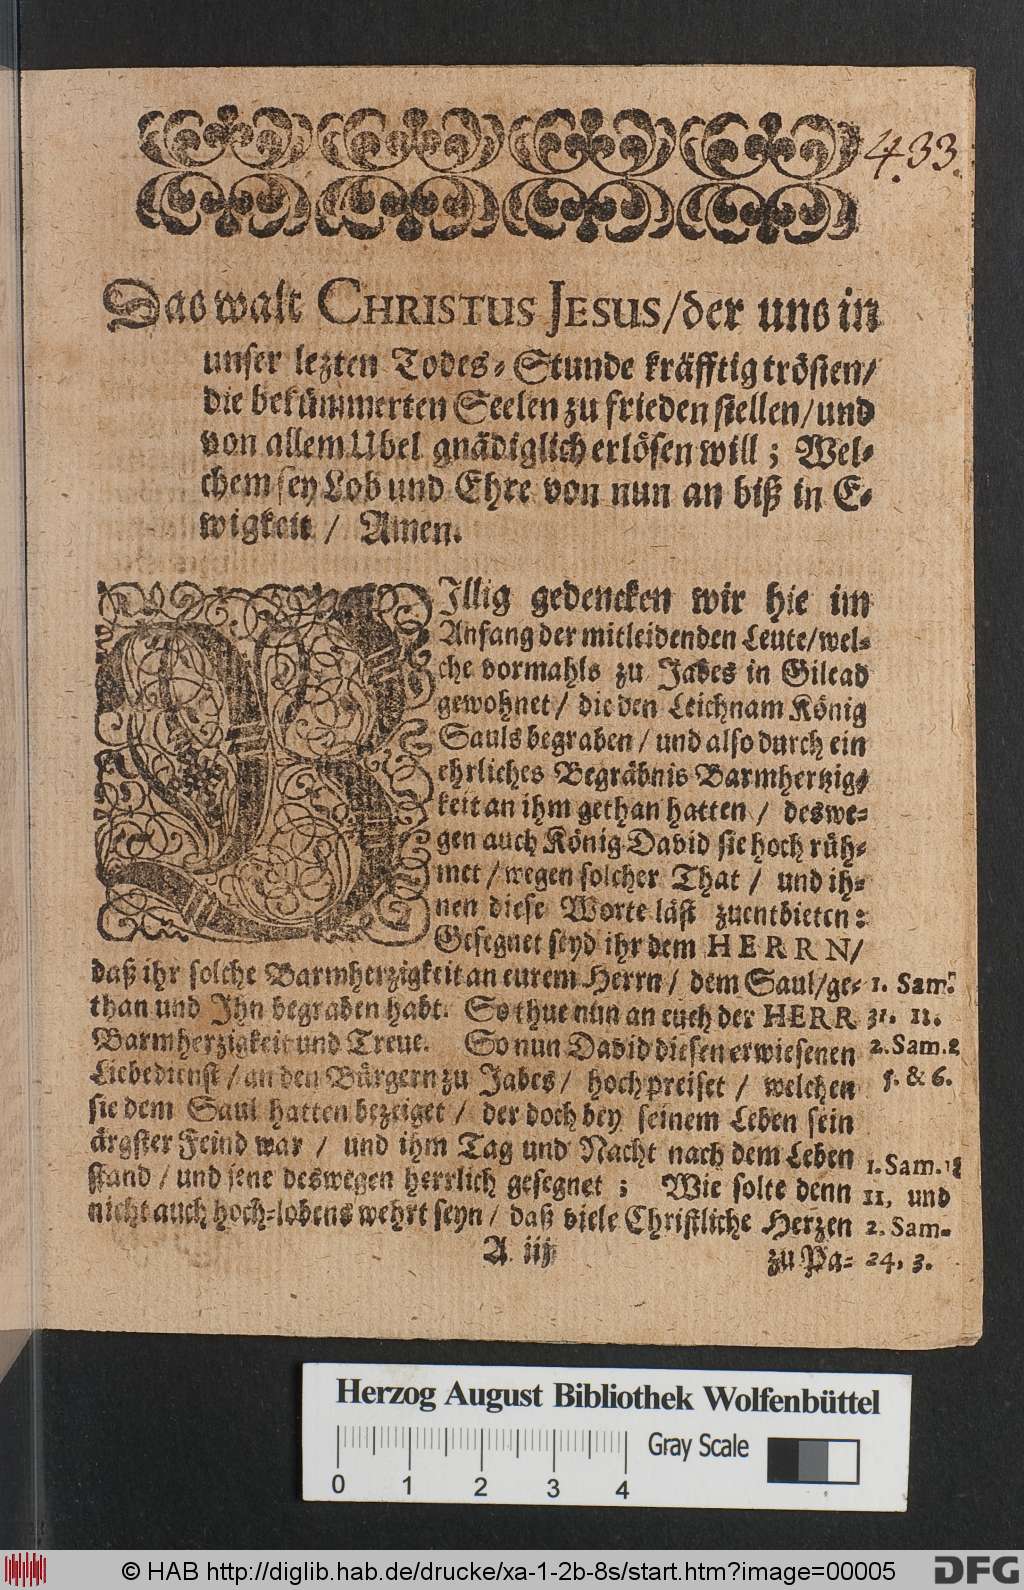 433.
Das walt CHRISTUS JESUS/der uns in
unser lezten Todes-Stunde kräfftig trösten/
die bekümmerten Seelen zu frieden stellen/und
von allem Ubel gnädiglich erlösen will; Wel-
chem sey Lob und Ehre von nun an biß in E-
wigkeit/ Amen.
BIllig gedencken wir hie im
Anfang der mitleidenden Leute/wel-
che vormahls zu Jabes in Gilead
gewohnet/ die den Leichnam König
Sauls begraben/ und also durch ein
ehrliches Begräbnis Barmhertzig-
keit an ihm gethan hatten/ deswe-
gen auch König David sie hoch rüh-
met/wegen solcher That/ und ih-
nen diese Worte läst zuentbieten:
Gesegnet seyd ihr dem HERRN/
daß ihr solche Barmherzigkeit an eurem Herrn/ dem Saul/ge-
than und Ihn begraben habt. So thue nun an euch der HERR
Barmherzigkeit und Treue. So nun David diesen erwiesenen
Liebedienst/an den Bürgern zu Jabes/ hoch preiset/ welchen
sie dem Saul hatten bezeiget/ der doch bey seinem Leben sein
ärgster Feind war/ und ihm Tag und Nacht nach dem Leben
stand/und jene deswegen herrlich gesegnet; Wie solte denn
nicht auch hoch-lobens wehrt seyn/ daß viele Christliche Herzen
A iij
zu Pa-
1. Sam.
31. 11.
2. Sam. 2
5. & 6.
1. Sam. 18
11, und
2. Sam.
24, 3.
Herzog August Bibliothek Wolfenbüttel
Gray Scale
0 1 2 3 4
© HAB http://diglib.hab.de/drucke/xa-1-2b-8s/start.htm?image=00005
DFG